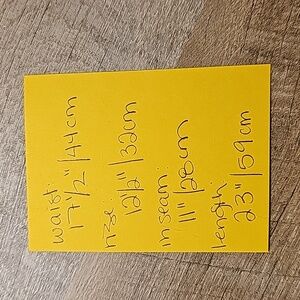 waist:
17 1/2" | 44cm
rise:
12 1/2" | 32cm
inseam:
11" | 28cm
length:
23" | 59cm